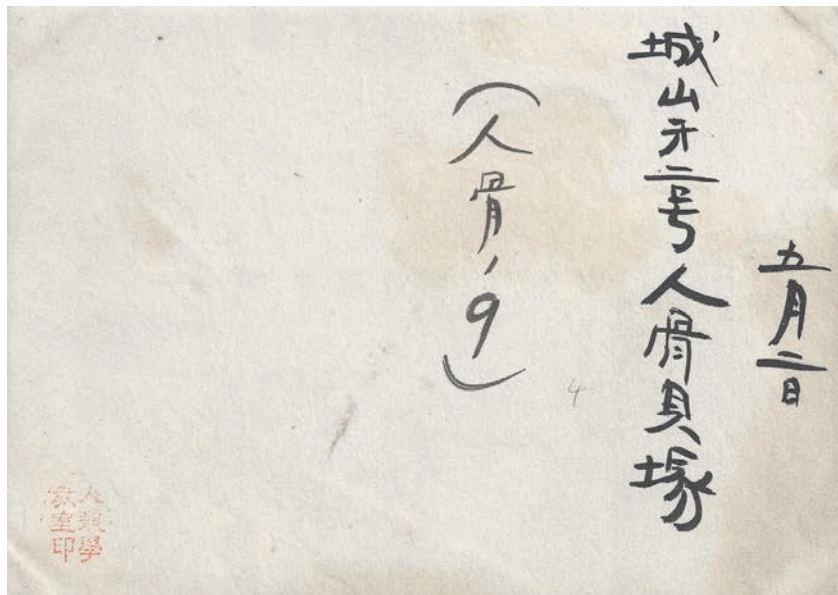 五月二日
城山才二号人骨貝塚
(人骨ノ9)
4
人類學
教室印